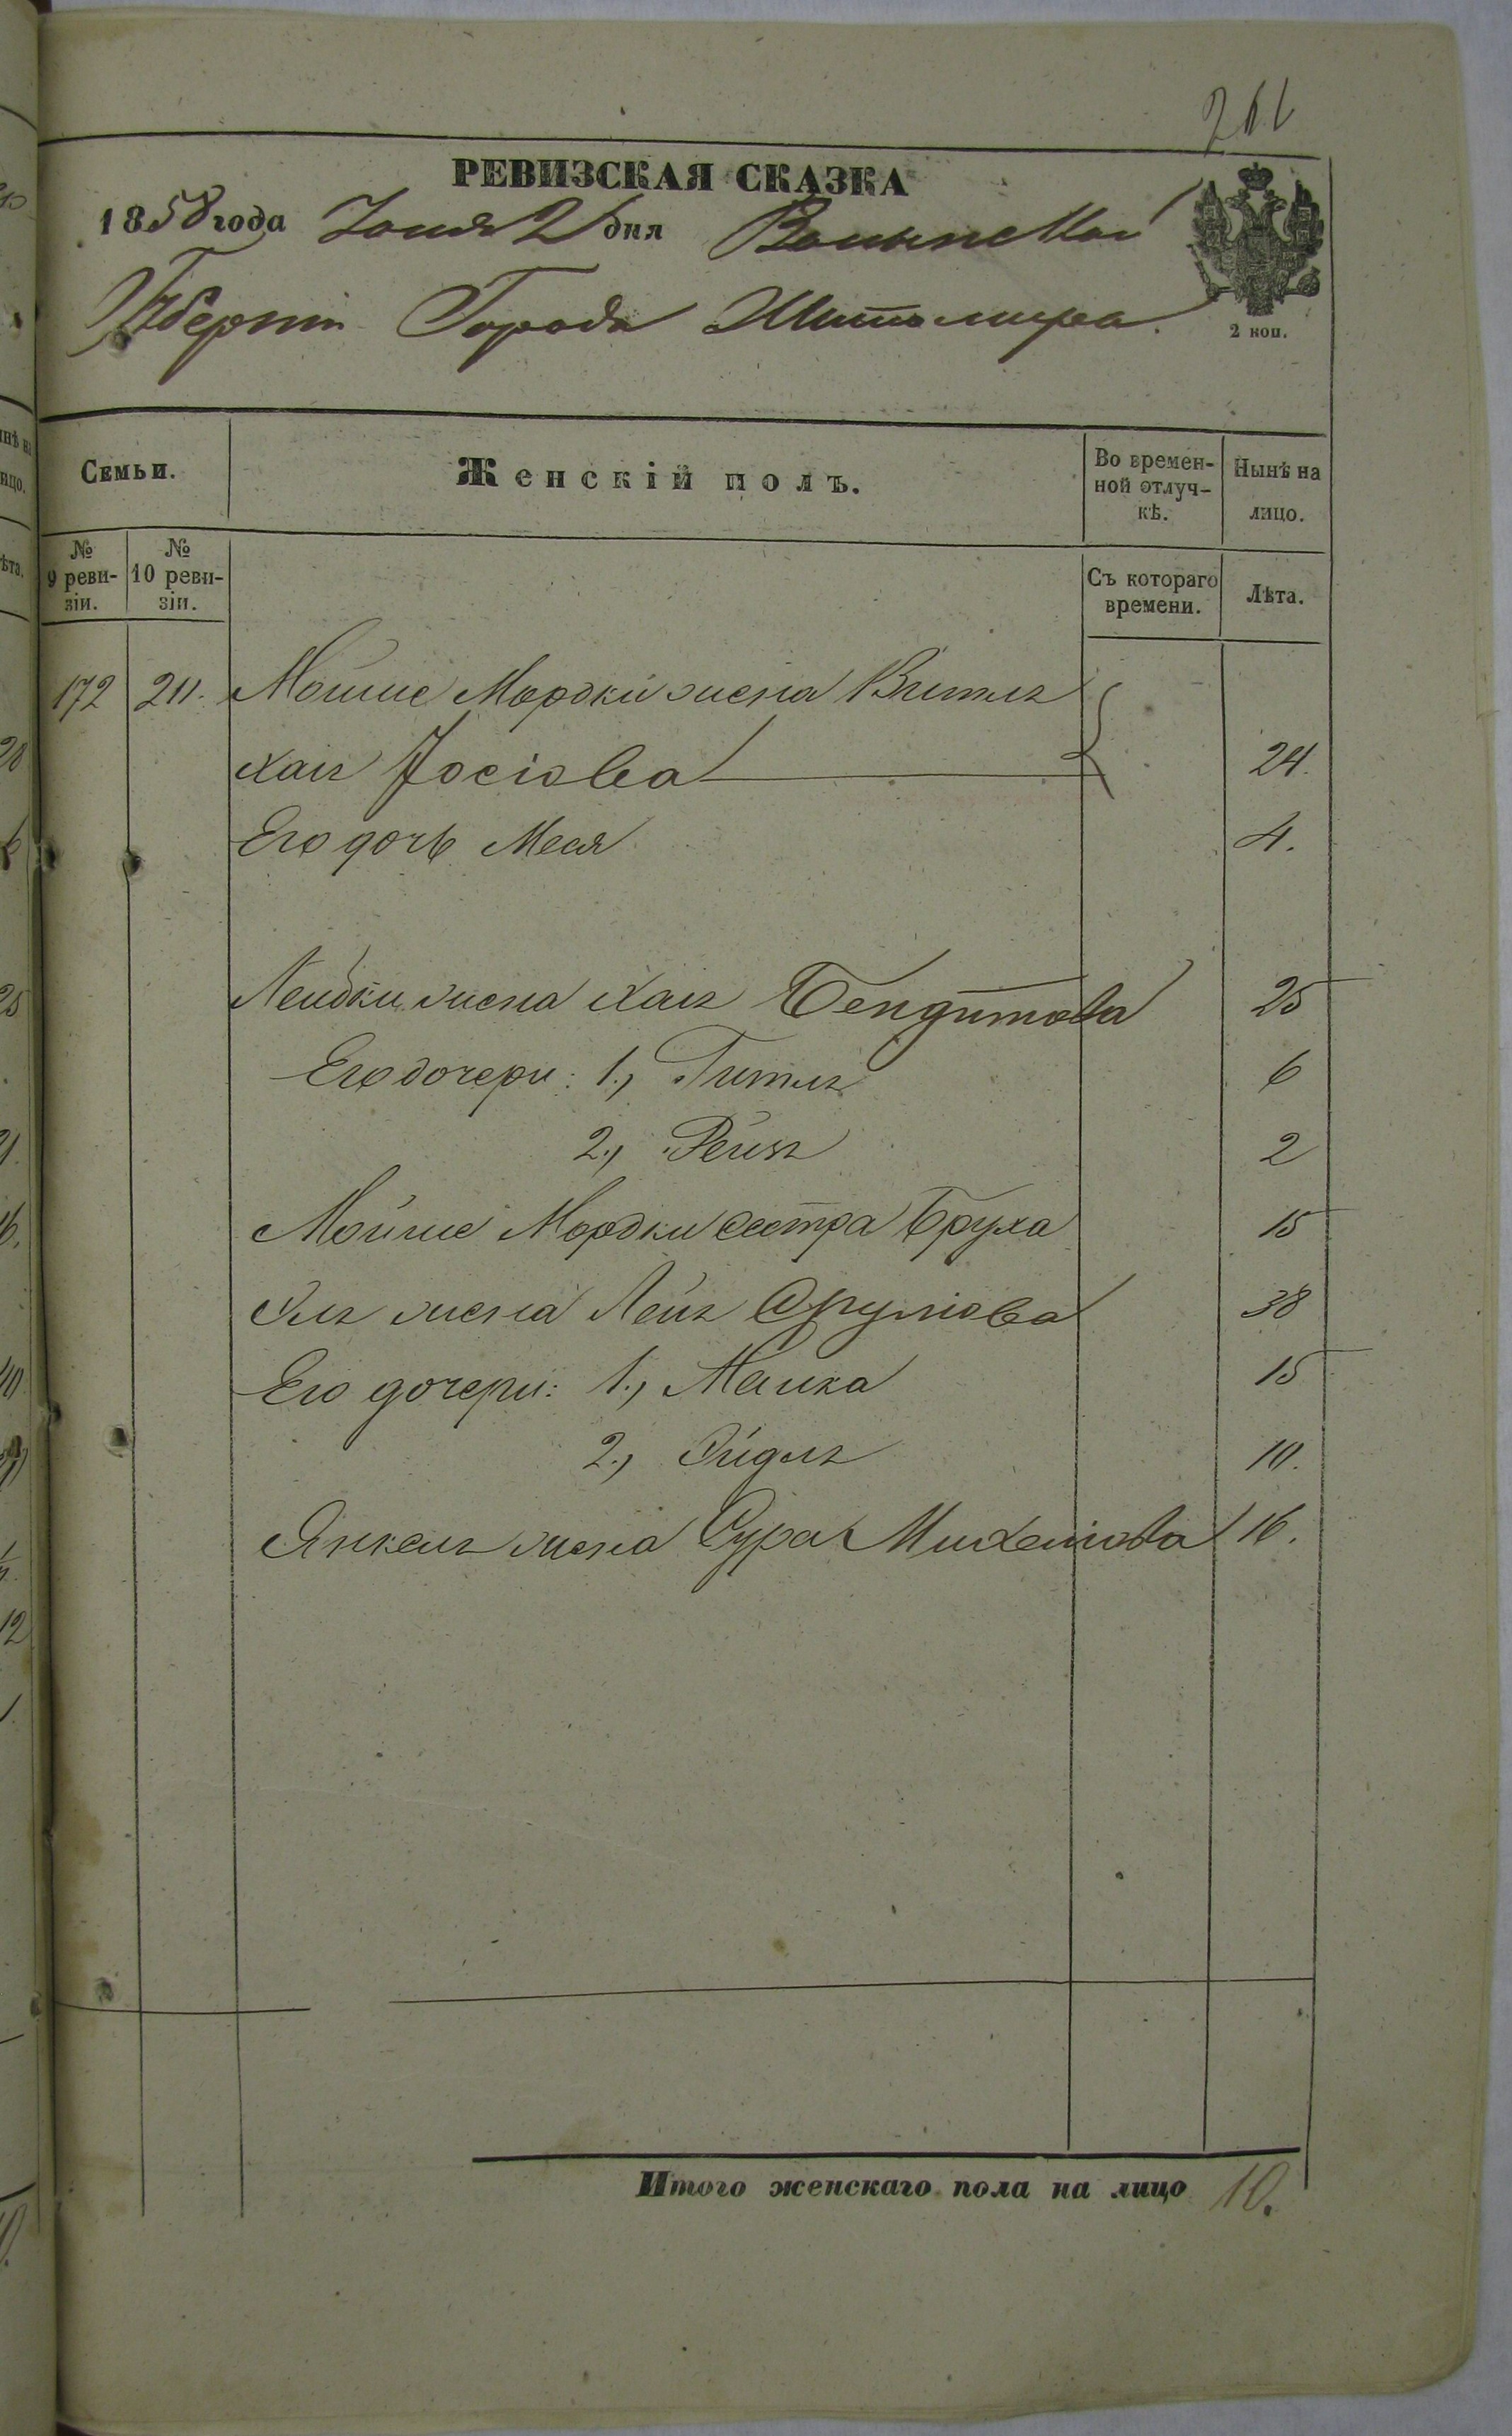 261
РЕВИЗСКАЯ СКАЗКА
1858 года Іюня 2 дня Волынской
Губерніи Города Житомира.
2 коп.
Семьи. Женскій полъ. Во времен-ной отлуч-кѣ. Нынѣ на лицо.
№ 9 реви-зіи. № 10 реви-зіи. Съ котораго времени. Лѣта.
172 211. Мойше Мордки жена Витля
Хая Іосіова 24.
Его дочь Меся 4.
Лейбки жена Хая Бендитова 25
Его дочери: 1., Гитля 6
2., Рейзя 2
Мойше Мордки сестра Бруха 15
жена Лея Сруліова 38
Его дочери: 1., Малка 15
2., Эйдля 10.
Янкеля жена Сура Михеліова 16.
Итого женскаго пола на лицо 10.